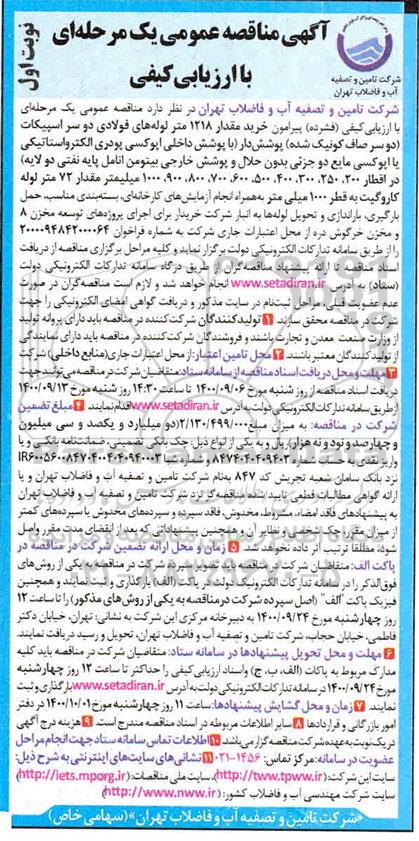 آگهی مناقصه عمومی یک مرحله‌ای
با ارزیابی کیفی
نوبت اول
شرکت تامین و تصفیه
آب و فاضلاب تهران
شرکت تامین و تصفیه آب و فاضلاب تهران در نظر دارد مناقصه عمومی یک مرحله‌ای
با ارزیابی کیفی (فشرده) پیرامون خرید مقدار ۱۲۱۸ متر لوله‌های فولادی دو سر اسپیکات
(دو سر صاف کونیک شده) پوشش‌دار (با پوشش داخلی اپوکسی پودری الکترواستاتیکی
یا اپوکسی مایع دو جزئی بدون حلال و پوشش خارجی بیتومن انامل پایه نفتی دو لایه)
در اقطار ۲۰۰، ۲۵۰، ۳۰۰، ۴۰۰، ۵۰۰، ۶۰۰، ۷۰۰، ۸۰۰، ۹۰۰، ۱۰۰۰ میلیمتر مقدار ۷۲ متر لوله
کاروگیت به قطر ۱۰۰۰ میلی متر به‌همراه انجام آزمایش‌های کارخانه‌ای، بسته‌بندی مناسب، حمل
بارگیری، باراندازی و تحویل لوله‌ها به انبار شرکت خریدار برای اجرای پروژه‌های توسعه مخزن ۸
و مخزن خرگوش دره از محل اعتبارات جاری شرکت به شماره فراخوان ۲۰۰۰۰۹۴۸۴۲۰۰۰۰۶۴
را از طریق سامانه تدارکات الکترونیکی دولت برگزار نماید و کلیه مراحل برگزاری مناقصه از دریافت
اسناد مناقصه تا ارائه پیشنهاد مناقصه‌گران از طریق درگاه سامانه تدارکات الکترونیکی دولت
(ستاد) به آدرس www.setadiran.ir انجام خواهد شد و لازم است مناقصه‌گران در صورت
عدم عضویت قبلی مراحل ثبت‌نام در سایت مذکور و دریافت گواهی امضای الکترونیکی را جهت
شرکت در مناقصه محقق سازند. ۱ تولیدکنندگان شرکت‌کننده در مناقصه باید دارای پروانه تولید
از وزارت صنعت معدن و تجارت باشند و فروشندگان شرکت‌کننده در مناقصه باید دارای نمایندگی
از تولید کنندگان معتبر باشند. ۲ محل تامین اعتبار: از محل اعتبارات جاری (منابع داخلی) شرکت
۳ مهلت و محل دریافت اسناد مناقصه از سامانه ستاد: متقاضیان شرکت در مناقصه می‌توانند جهت
دریافت اسناد مناقصه از روز شنبه مورخ ۱۴۰۰/۰۹/۰۶ تا ساعت ۱۴:۳۰ روز شنبه مورخ ۱۴۰۰/۰۹/۱۳
از طریق سامانه تدارکات الکترونیکی دولت به آدرس www.setadiran.ir اقدام نمایند. ۴ مبلغ تضمین
شرکت در مناقصه: به میزان مبلغ ۲/۱۳۰/۴۹۹/۰۰۰ (دو میلیارد و یکصد و سی میلیون
و چهارصد و نود و نه هزار) ریال و به یکی از انواع ذیل: چک بانکی تضمینی، ضمانت‌نامه بانکی و یا
واریز نقدی به حساب شماره ۸۴۷۴۰۴۰۴۰۹۴۰۳ و شماره شبا IR۶۰۰۵۶۰۰۸۴۷۰۴۰۴۰۴۰۹۴۰۰۳
نزد بانک سامان شعبه تجریش کد ۸۴۷ به‌نام شرکت تامین و تصفیه آب و فاضلاب تهران و یا
ارائه گواهی مطالبات قطعی تایید شده مناقصه‌گر نزد شرکت تامین و تصفیه آب و فاضلاب تهران
به پیشنهادهای فاقد امضاء، مشروط، مخدوش، فاقد سپرده و سپرده‌های مخدوش یا سپرده‌های کمتر
از میزان مقرر، چک شخصی و نظایر آن و همچنین پیشنهاداتی که بعد از انقضای مدت مقرر واصل
شود، مطلقا ترتیب اثر داده نخواهد شد. ۵ زمان و محل ارائه تضمین شرکت در مناقصه در
پاکت الف: متقاضیان شرکت در مناقصه می‌بایست تضمین شرکت در مناقصه به یکی از روش‌های
فوق‌الذکر را در سامانه تدارکات الکترونیکی دولت در پاکت (الف) بارگذاری و ثبت نمایند و همچنین
فیزیک پاکت "الف" (اصل سپرده شرکت در مناقصه به یکی از روش‌های مذکور) را تا ساعت ۱۲
روز چهارشنبه مورخ ۱۴۰۰/۰۹/۲۴ به دبیرخانه مرکزی این شرکت به نشانی: تهران، خیابان دکتر
فاطمی، خیابان حجاب، شرکت تامین و تصفیه آب و فاضلاب تهران، تحویل و رسید دریافت نمایند.
۶ مهلت و محل تحویل پیشنهادها در سامانه ستاد: متقاضیان شرکت در مناقصه باید کلیه
مدارک مربوط به پاکات (الف، ب، ج) واسناد ارزیابی کیفی را حداکثر تا ساعت ۱۲ روز چهارشنبه
مورخ ۱۴۰۰/۰۹/۲۴ در سامانه تدارکات الکترونیکی دولت به آدرس www.setadiran.ir بارگذاری و ثبت
نمایند. ۷ زمان و محل گشایش پیشنهادها: ساعت ۱۱ روز چهارشنبه مورخ ۱۴۰۰/۱۰/۰۱ در دفتر
امور بازرگانی و قراردادها ۸ سایر اطلاعات مربوطه در اسناد مناقصه مندرج است. ۹ هزینه درج آگهی
در یک نوبت به‌عهده شرکت مناقصه گزار می‌باشد. ۱۰ اطلاعات تماس سامانه ستاد جهت انجام مراحل
عضویت در سامانه: مرکز تماس: ۱۴۵۶-۰۲۱ ۱۱ نشانی‌های سایت‌های اینترنتی به شرح ذیل:
سایت این شرکت: (http://www.tpww.ir)، سایت ملی مناقصات: (http://iets.mporg.ir)
سایت شرکت مهندسی آب و فاضلاب کشور: (http://www.nww.ir)
«شرکت تامین و تصفیه آب و فاضلاب تهران» (سهامی خاص)